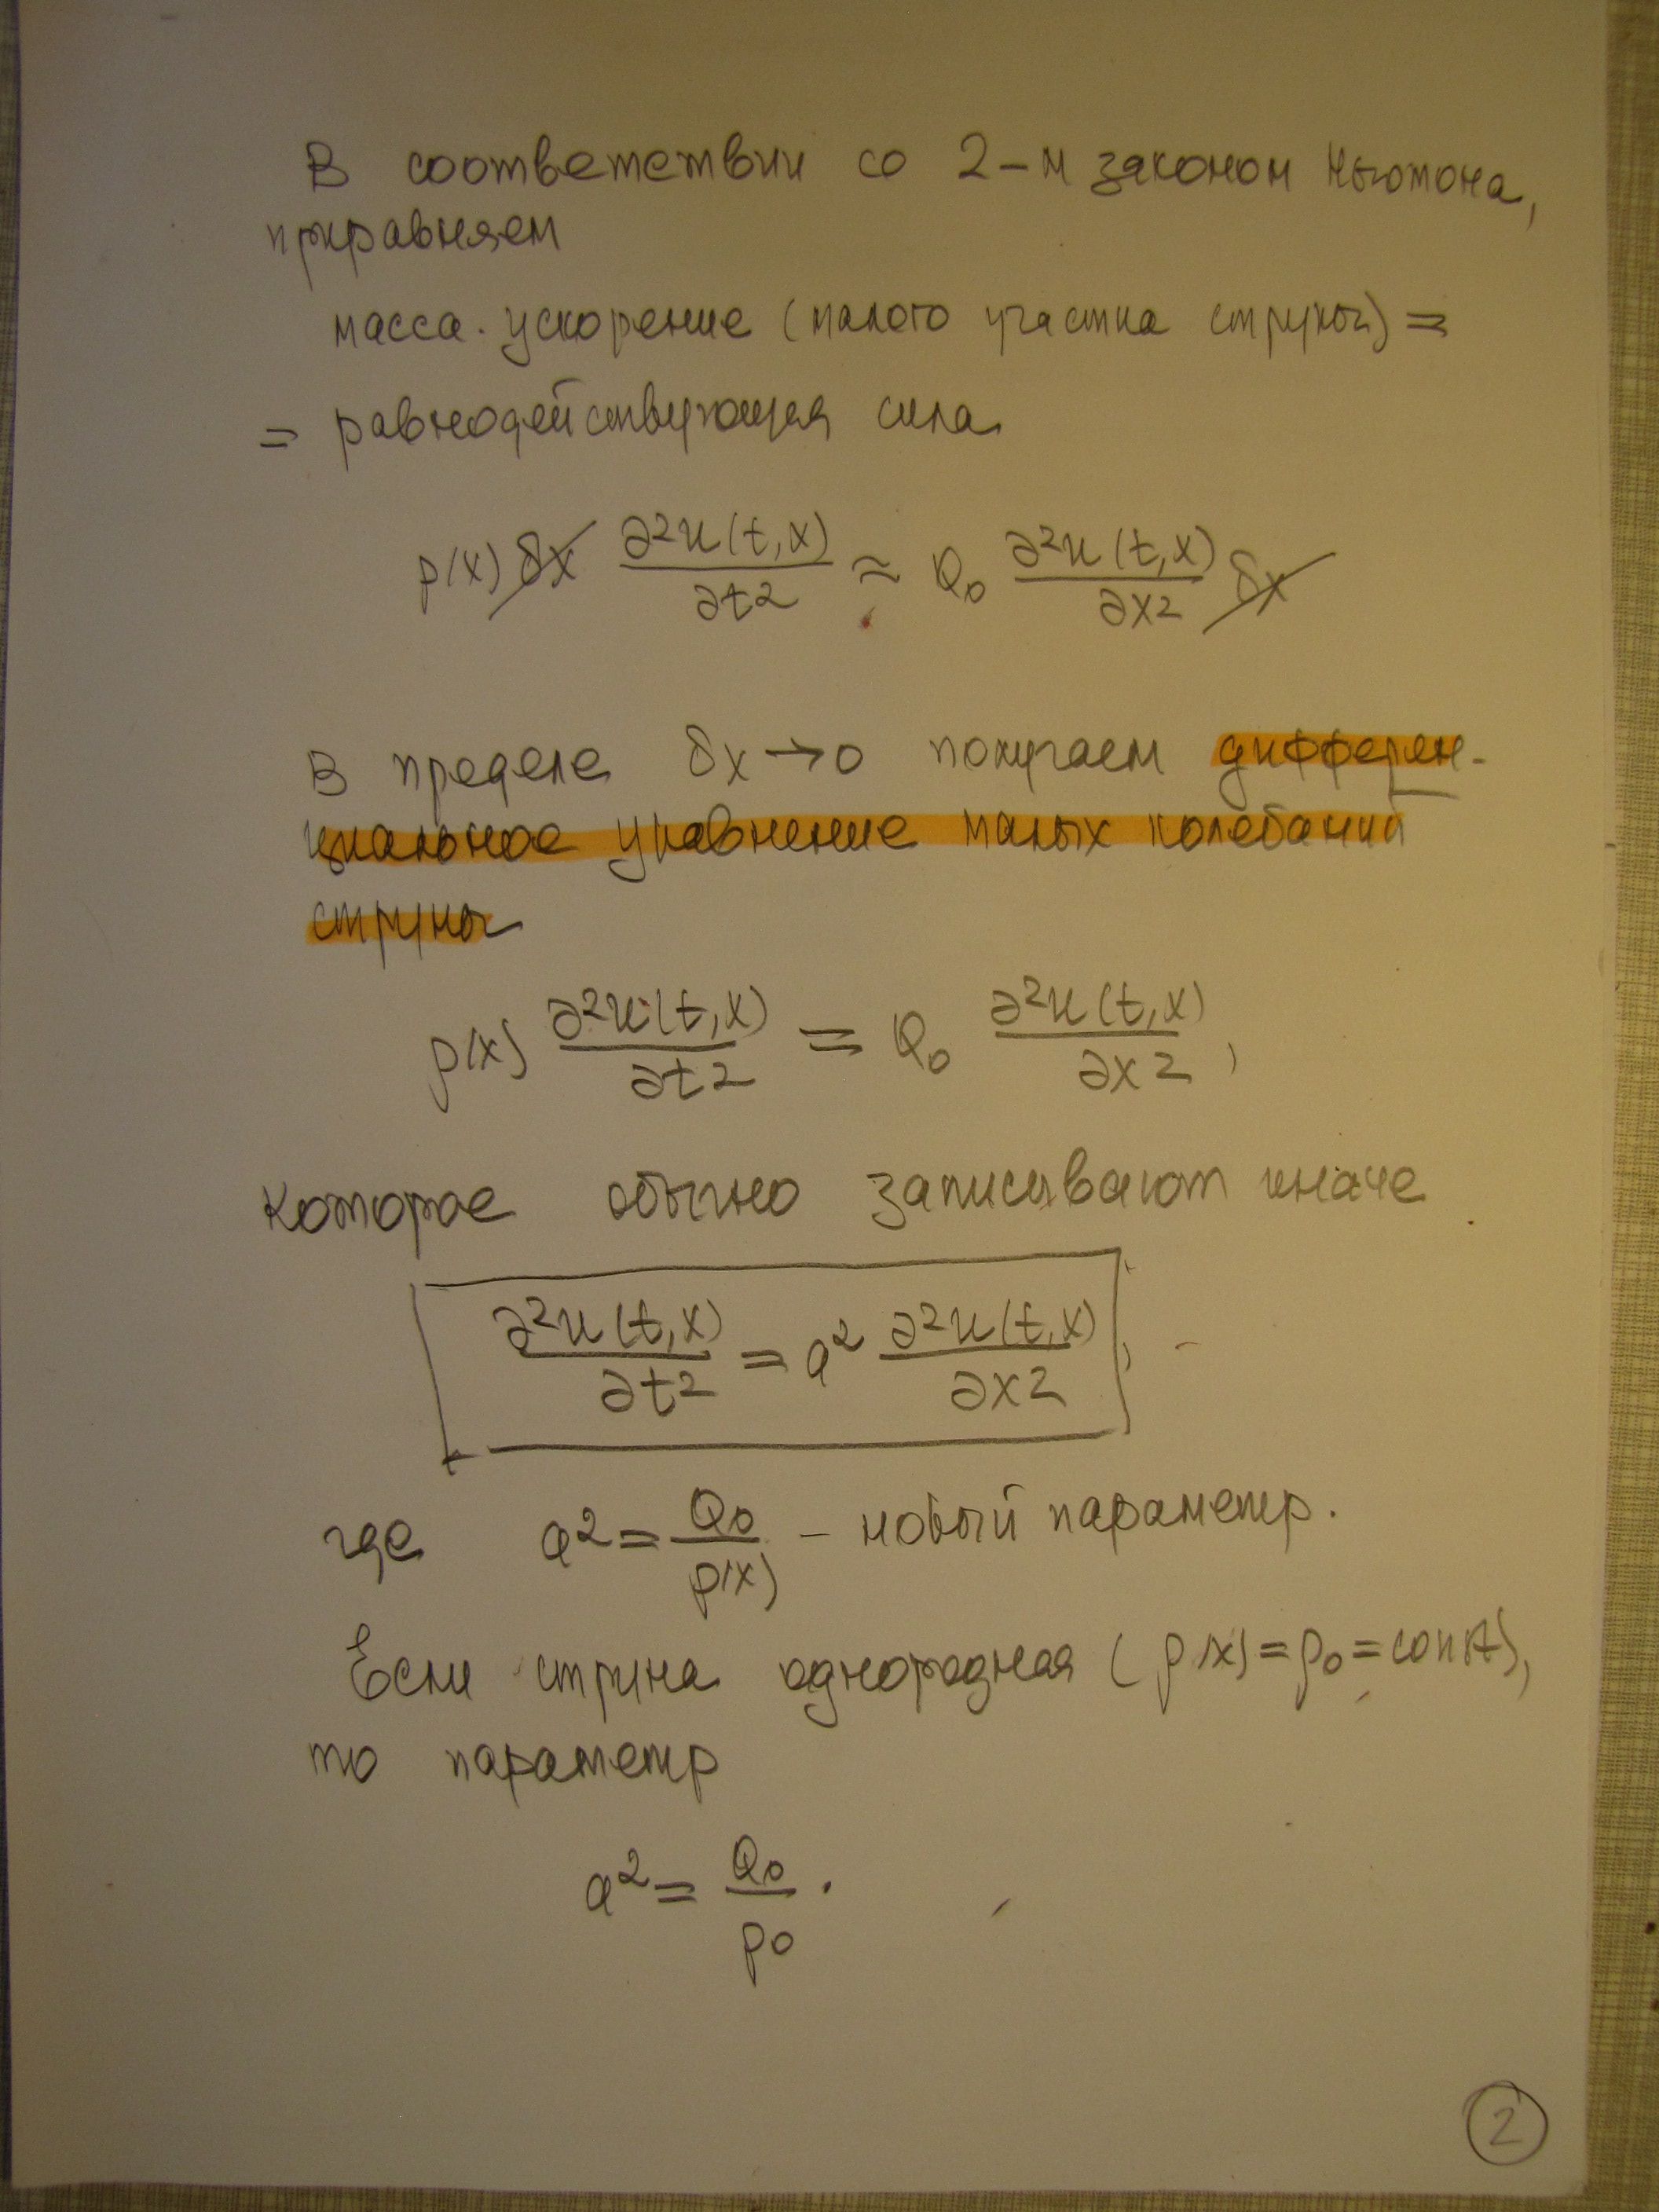 В соответствии со 2-м законом Ньютона,
приравняем
масса · ускорение (малого участка струны) =
= равнодействующая сила
ρ(x) δx ∂²u(t,x)/∂t² ≈ Q₀ ∂²u(t,x)/∂x² δx
В пределе δx→0 получаем дифферен-
циальное уравнение малых колебаний
струны
ρ(x) ∂²u(t,x)/∂t² = Q₀ ∂²u(t,x)/∂x²,
которое обычно записывают иначе
∂²u(t,x)/∂t² = a² ∂²u(t,x)/∂x²,
где a² = Q₀/ρ(x) – новый параметр.
Если струна однородная (ρ(x)=ρ₀=const),
то параметр
a² = Q₀/ρ₀.
2